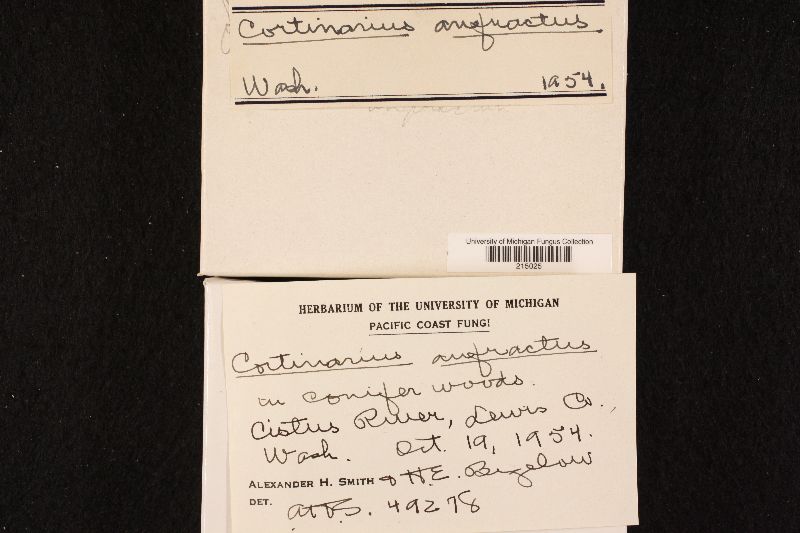 Cortinarius anfractus.
Wash. 1954.
University of Michigan Fungus Collection
215025
HERBARIUM OF THE UNIVERSITY OF MICHIGAN
PACIFIC COAST FUNGI
Cortinarius anfractus
in conifer woods.
Cistus River, Lewis Co.,
Wash. Oct. 19, 1954.
ALEXANDER H. SMITH & H.E. Bigelow
DET. AHS. 49278